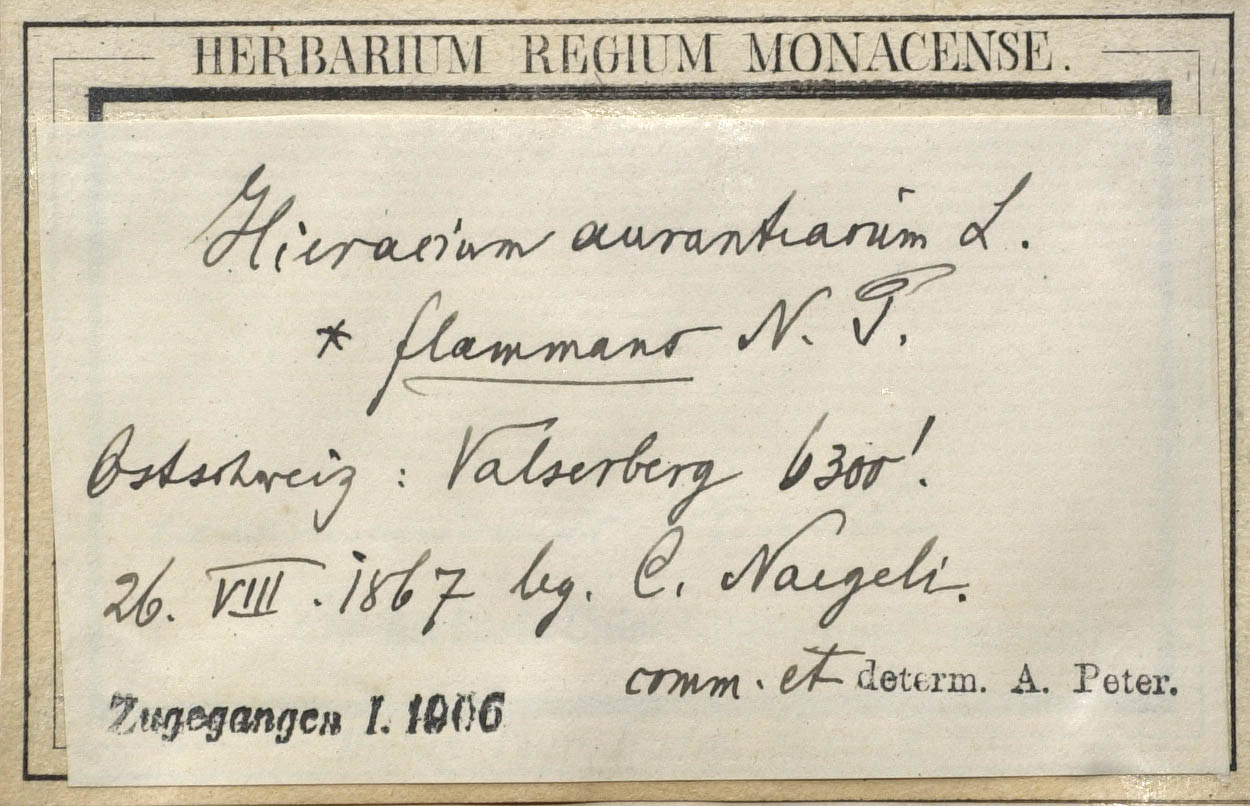 HERBARIUM REGIUM MONACENSE.
Hieracium aurantiacum L.
* flammans N. P.
Ostschweiz : Valserberg 6300'.
26. VIII. 1867 leg. C. Naegeli.
comm. et determ. A. Peter.
Zugegangen I. 1906